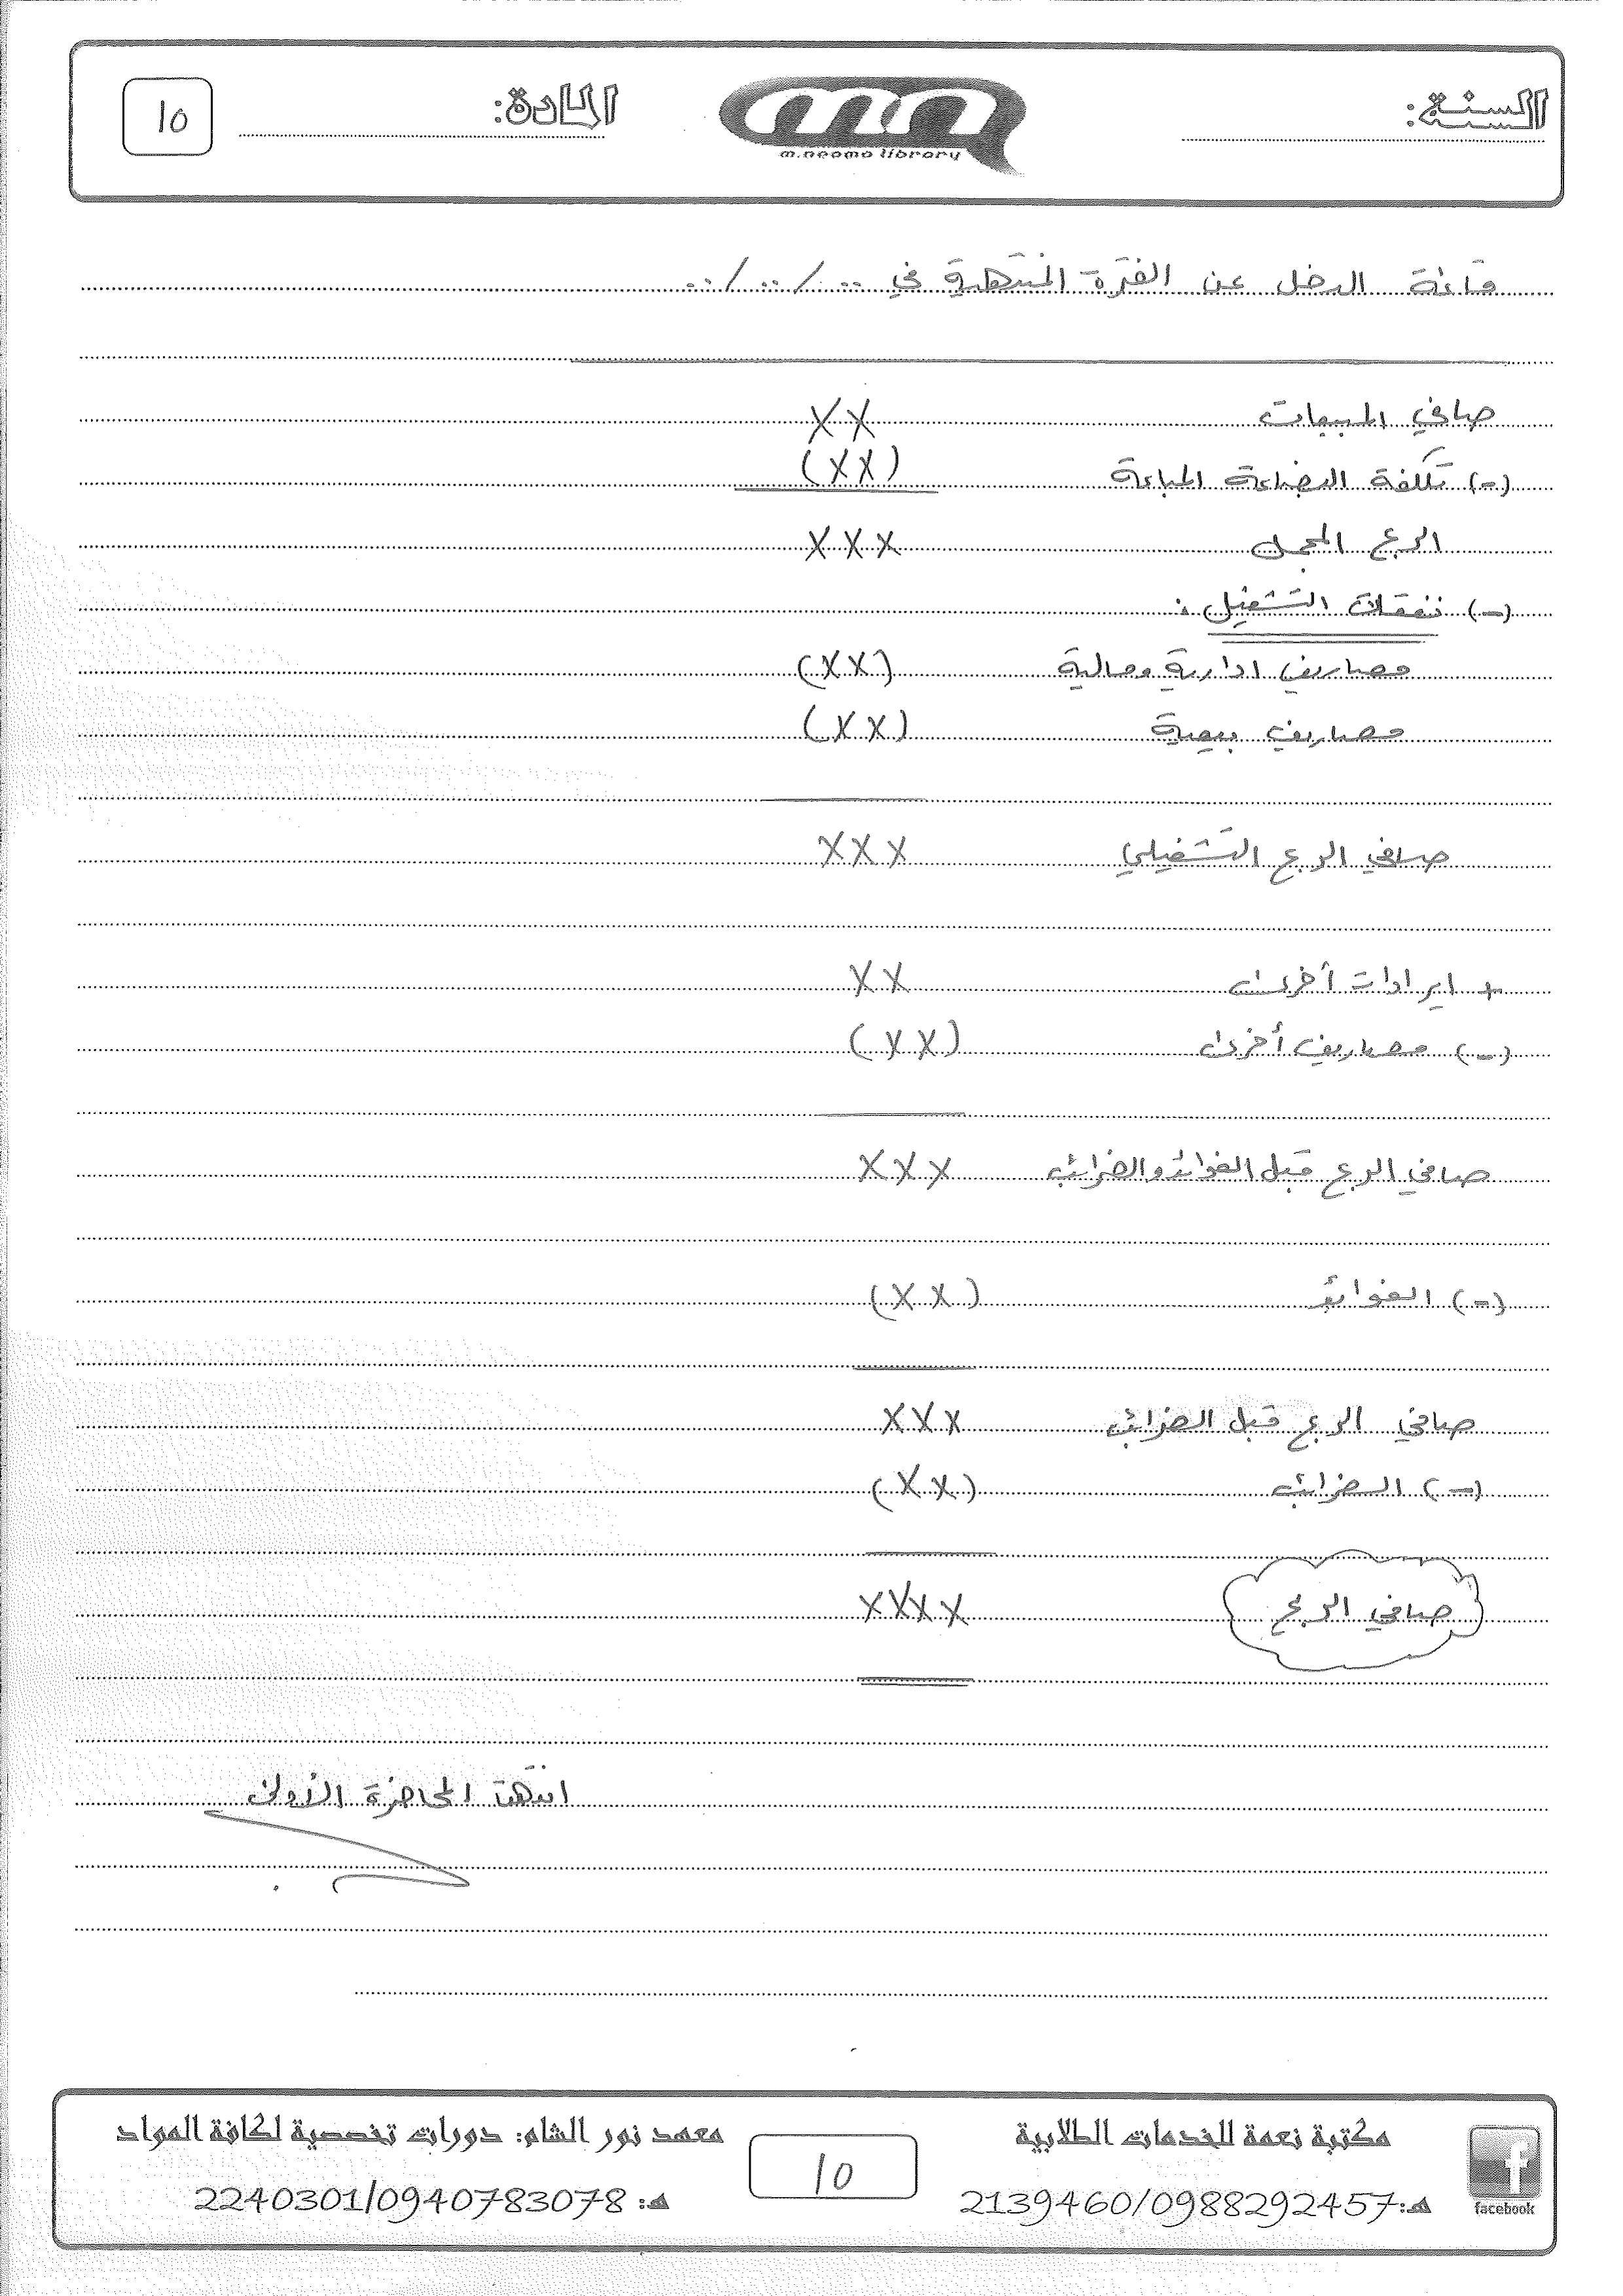 السنة:
m.neama library
المادة:
10
قائمة الدخل عن الفترة المنتهية في ../../..
صافي المبيعات XX
(-) تكلفة البضاعة المباعة (XX)
الربح المجمل XXX
(-) نفقات التشغيل :
مصاريف ادارية ومالية (XX)
مصاريف بيعية (XX)
صافي الربح التشغيلي XXX
+ ايرادات أخرى XX
(-) مصاريف أخرى (XX)
صافي الربح قبل الفوائد والضرائب XXX
(-) الفوائد (XX)
صافي الربح قبل الضرائب XXX
(-) الضرائب (XX)
صافي الربح XXXX
انتهت المحاضرة الأولى
facebook
مكتبة نعمة للخدمات الطلابية
هـ: 2139460/0988292457
10
معهد نور الشام: دورات تخصصية لكافة المواد
هـ: 2240301/0940783078